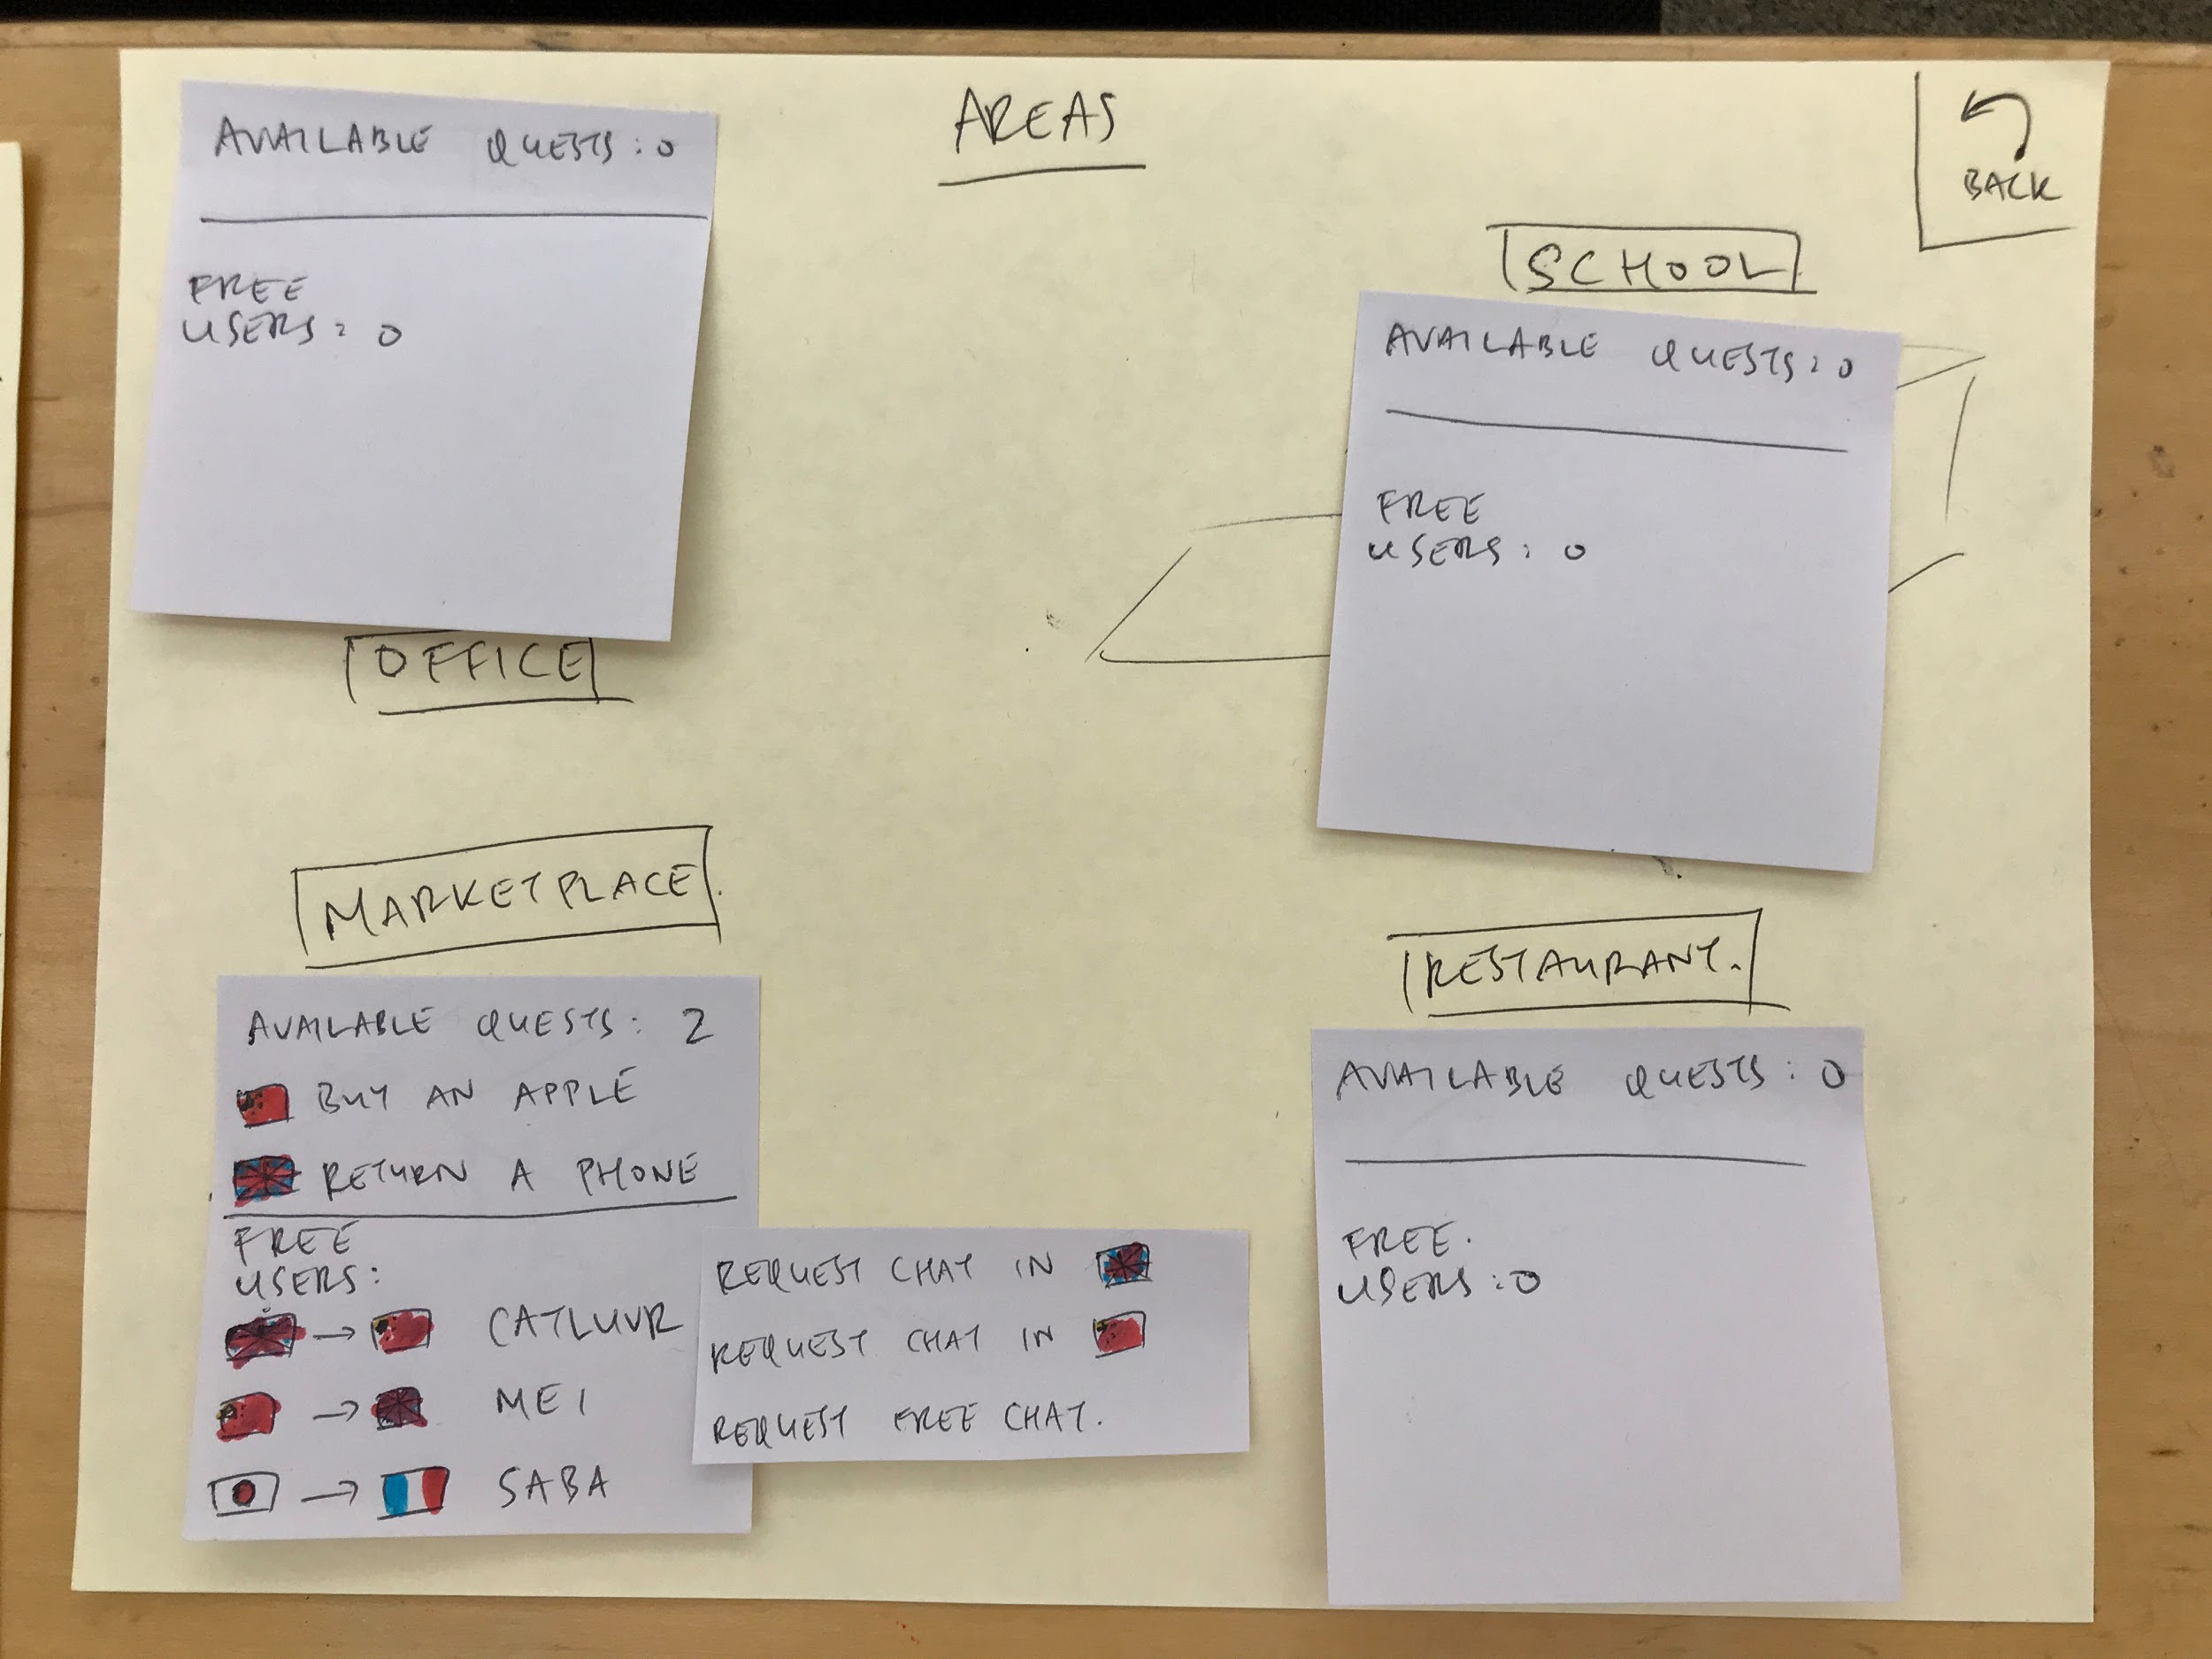 AREAS
BACK
AVAILABLE QUESTS: 0
FREE
USERS: 0
OFFICE
SCHOOL
AVAILABLE QUESTS: 0
FREE
USERS: 0
MARKETPLACE
AVAILABLE QUESTS: 2
BUY AN APPLE
RETURN A PHONE
FREE
USERS:
→ CATLUVR
→ MEI
→ SABA
REQUEST CHAT IN
REQUEST CHAT IN
REQUEST FREE CHAT.
RESTAURANT.
AVAILABLE QUESTS: 0
FREE.
USERS: 0